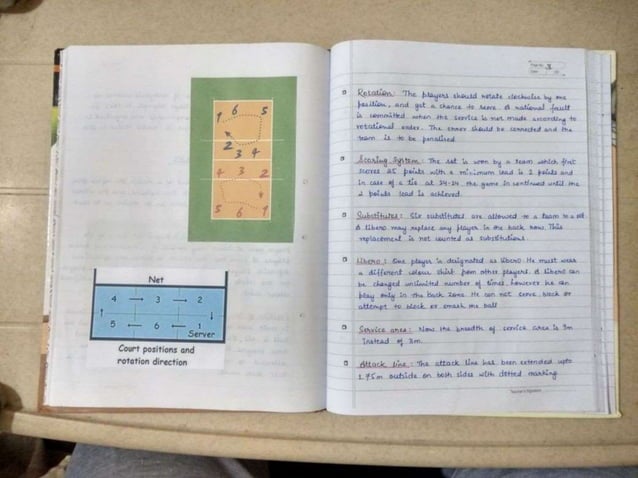 1 6 5
2 3 4
4 3 2
5 6 1
Net
4 → 3 → 2
5 ← 6 ← 1
Server
Court positions and
rotation direction
Page No. 3
Date
Rotation: The players should rotate clockwise by one
position, and get a chance to serve. A rational fault
is committed when the service is not made according to
rotational order. The error should be corrected and the
team is to be penalised
Scoring System: The set is won by a team which first
scores 25 points with a minimum lead is 2 points and
in case of a tie at 24-24 the game is continued until the
2 points lead is achieved.
Substitutes: Six substitutes are allowed to a team in a set.
A libero may replace any player in the back row. This
replacement is not counted as substitutions.
Libero: One player is designated as libero. He must wear
a different colour shirt from other players. A libero can
be changed unlimited number of times, however he can
play only in the back zone. He can not serve block or
attempt to block or smash the ball
Service area: Now the breadth of service area is 9m
instead of 3m.
Attack line: The attack line has been extended upto
1.75m outside on both sides with dotted marking
Teacher's Signature